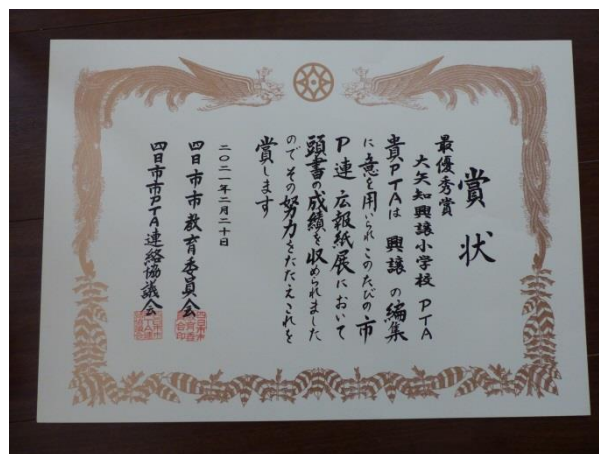 賞状
最優秀賞
大矢知興譲小学校 PTA
貴PTAは 興譲 の編集
に意を用いられ このたびの 市
P連 広報紙展において
頭書の成績を収められました
ので その努力をたたえ これを
賞します
二〇二一年二月二十日
四日市市教育委員会
四日市市PTA連絡協議会